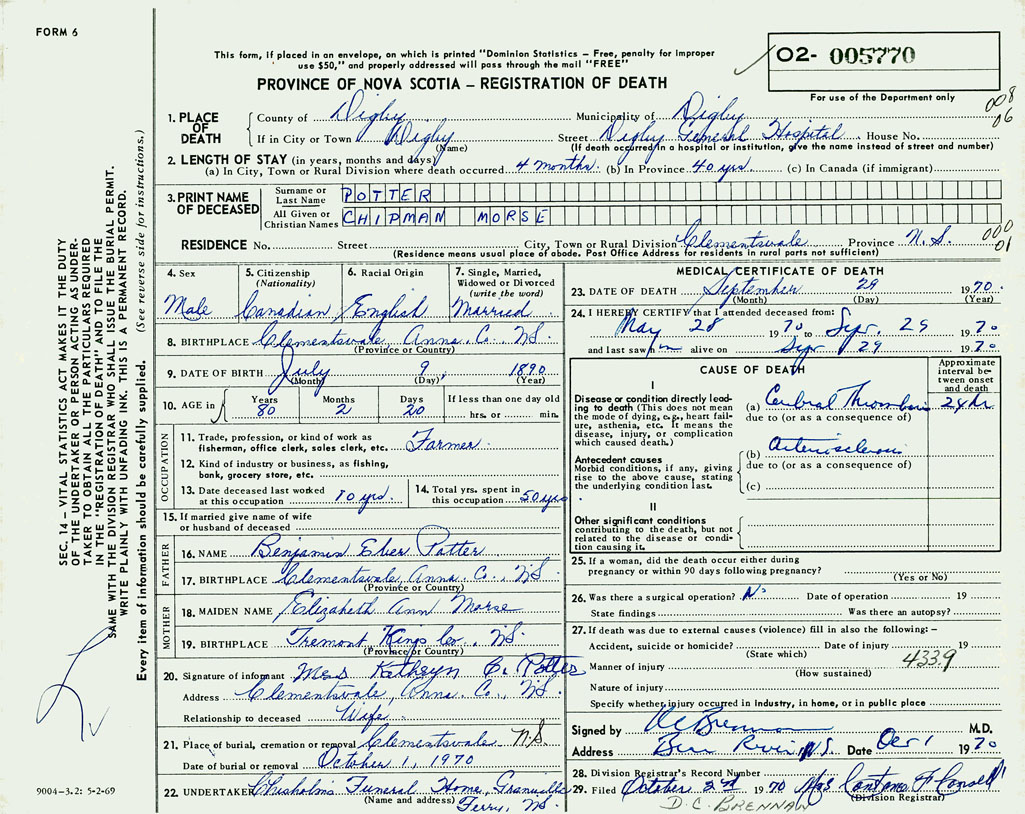 FORM 6
This form, if placed in an envelope, on which is printed "Dominion Statistics – Free, penalty for improper
use $50," and properly addressed will pass through the mail "FREE"
O2- 005770
PROVINCE OF NOVA SCOTIA – REGISTRATION OF DEATH
For use of the Department only
008
06
1. PLACE OF DEATH
County of Digby Municipality of Digby
If in City or Town Digby Street Digby General Hospital House No.
(Name) (If death occurred in a hospital or institution, give the name instead of street and number)
2. LENGTH OF STAY (in years, months and days)
(a) In City, Town or Rural Division where death occurred 4 months (b) In Province 40 yrs. (c) In Canada (if immigrant)
3. PRINT NAME OF DECEASED
Surname or Last Name POTTER
All Given or Christian Names CHIPMAN MORSE
000
01
RESIDENCE No. Street City, Town or Rural Division Clementsvale Province N.S.
(Residence means usual place of abode. Post Office Address for residents in rural parts not sufficient)
4. Sex 5. Citizenship (Nationality) 6. Racial Origin 7. Single, Married, Widowed or Divorced (write the word)
Male Canadian English Married
8. BIRTHPLACE Clementsvale Anna. Co. NS
(Province or Country)
9. DATE OF BIRTH July 9, 1890
(Month) (Day) (Year)
10. AGE in Years Months Days If less than one day old
80 2 20 hrs. or min.
OCCUPATION
11. Trade, profession, or kind of work as fisherman, office clerk, sales clerk, etc. Farmer
12. Kind of industry or business, as fishing, bank, grocery store, etc.
13. Date deceased last worked at this occupation 10 yrs 14. Total yrs. spent in this occupation 50 yrs.
15. If married give name of wife or husband of deceased
FATHER
16. NAME Benjamin Eber Potter
17. BIRTHPLACE Clementsvale, Anna. Co. NS
(Province or Country)
MOTHER
18. MAIDEN NAME Elizabeth Ann Morse
19. BIRTHPLACE Tremont Kings Co., NS
(Province or Country)
20. Signature of informant Mrs Kathryn C. Potter
Address Clementsvale, Anna. Co., NS.
Relationship to deceased Wife
21. Place of burial, cremation or removal Clementsvale N.S.
Date of burial or removal October 1, 1970
22. UNDERTAKER Chisholms Funeral Home, Granville
(Name and address) Ferry, NS
MEDICAL CERTIFICATE OF DEATH
23. DATE OF DEATH September 29 1970
(Month) (Day) (Year)
24. I HEREBY CERTIFY that I attended deceased from:
May 28 1970 to Sept. 29 1970
and last saw him alive on Sept 29 1970
CAUSE OF DEATH
Approximate interval between onset and death
I
Disease or condition directly leading to death (This does not mean the mode of dying, e.g., heart failure, asthenia, etc. It means the disease, injury, or complication which caused death.)
(a) Cerebral Thrombosis 24 hr
due to (or as a consequence of)
Antecedent causes
Morbid conditions, if any, giving rise to the above cause, stating the underlying condition last.
(b) Arteriosclerosis
due to (or as a consequence of)
(c)
II
Other significant conditions
contributing to the death, but not related to the disease or condition causing it.
25. If a woman, did the death occur either during pregnancy or within 90 days following pregnancy?
(Yes or No)
26. Was there a surgical operation? No Date of operation 19
State findings Was there an autopsy?
27. If death was due to external causes (violence) fill in also the following: –
Accident, suicide or homicide? Date of injury 19
(State which) 4339
Manner of injury
(How sustained)
Nature of injury
Specify whether injury occurred in industry, in home, or in public place
Signed by DC Brennan M.D.
Address Bear River, N.S. Date Oct 1 1970
28. Division Registrar's Record Number
29. Filed October 2nd 1970 Mrs
(Division Registrar)
D. C. BRENNAN
SEC. 14 – VITAL STATISTICS ACT MAKES IT THE DUTY
OF THE UNDERTAKER OR PERSON ACTING AS UNDER-
TAKER TO OBTAIN ALL THE PARTICULARS REQUIRED
IN THE "REGISTRATION OF DEATH" AND TO FILE THE
SAME WITH THE DIVISION REGISTRAR WHO SHALL ISSUE THE BURIAL PERMIT.
WRITE PLAINLY WITH UNFADING INK. THIS IS A PERMANENT RECORD.
Every item of information should be carefully supplied. (See reverse side for instructions.)
9004–3.2: 5-2-69